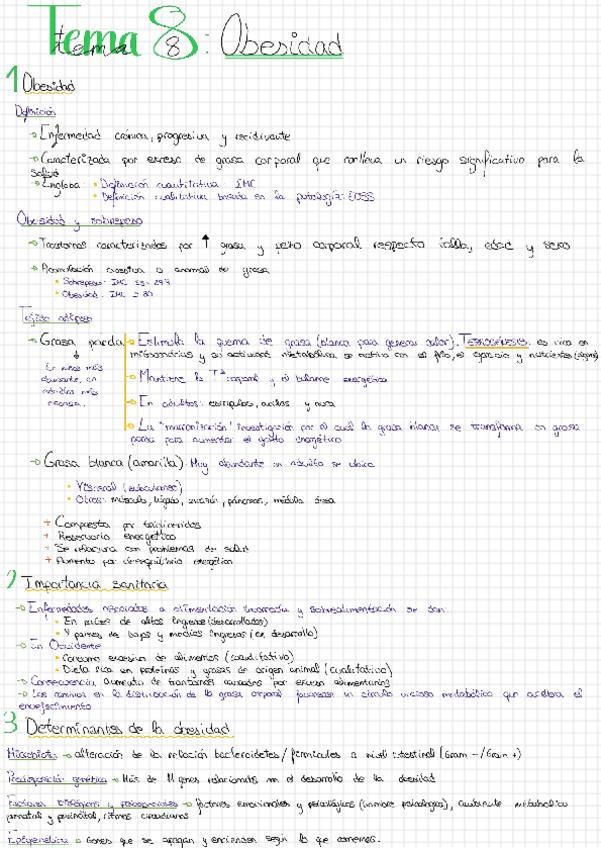 Tema 8: Obesidad
1 Obesidad
Definición
Enfermedad crónica, progresiva y recidivante
Caracterizada por exceso de grasa corporal que conlleva un riesgo significativo para la
salud
Engloba • Definición cuantitativa IMC
• Definición cualitativa basada en la patología: EOSS
Obesidad y sobrepeso
Trastornos caracterizados por ↑ grasa y peso corporal respecto talla, edad y sexo
Acumulación excesiva o anormal de grasa
• Sobrepeso: IMC 25-29'9
• Obesidad: IMC ≥ 30
Tejido adiposo
Grasa parda Estimula la quema de grasa (blanca para generar calor). Termogénesis. es rica en
mitocondrias y su actividad metabólica se activa con el frío, el ejercicio y nutrientes
En niños más
abundante, en
adultos más
escasa.
Mantiene la Tª corporal y el balance energético
En adultos: escápulas, axilas y nuca
La "marronización" investigación por el cual la grasa blanca se transforma en grasa
parda para aumentar el gasto energético
Grasa blanca (amarilla). Muy abundante en adulto se ubica
• Visceral (subcutáneo)
• Otros: músculo, hígado, corazón, páncreas, médula ósea
+ Compuesta por triglicéridos
+ Reservorio energético
+ Se relaciona con problemas de salud
+ Aumento por desequilibrio energético
2 Importancia sanitaria
Enfermedades asociadas a alimentación incorrecta y sobrealimentación se dan:
• En países de altos ingresos (desarrollados)
• Y países de bajos y medios ingresos (en desarrollo)
En Occidente
• Consumo excesivo de alimentos (cuantitativo)
• Dieta rica en proteínas y grasas de origen animal (cualitativo)
Consecuencia aumento de trastornos causados por exceso alimentarios
Los cambios en la distribución de la grasa corporal favorecen un círculo vicioso metabólico que acelera el
envejecimiento
3 Determinantes de la obesidad
Microbiota alteración de la relación bacteroidetes/firmicutes a nivel intestinal (Gram -/Gram +)
Predisposición genética Más de genes relacionados con el desarrollo de la obesidad
Factores biológicos y psicosociales factores emocionales y psicológicos (insomnio psicológico), metabólico
prenatal y perinatal, ritmos circadianos
Epigenética Genes que se apagan y encienden según lo que comemos.